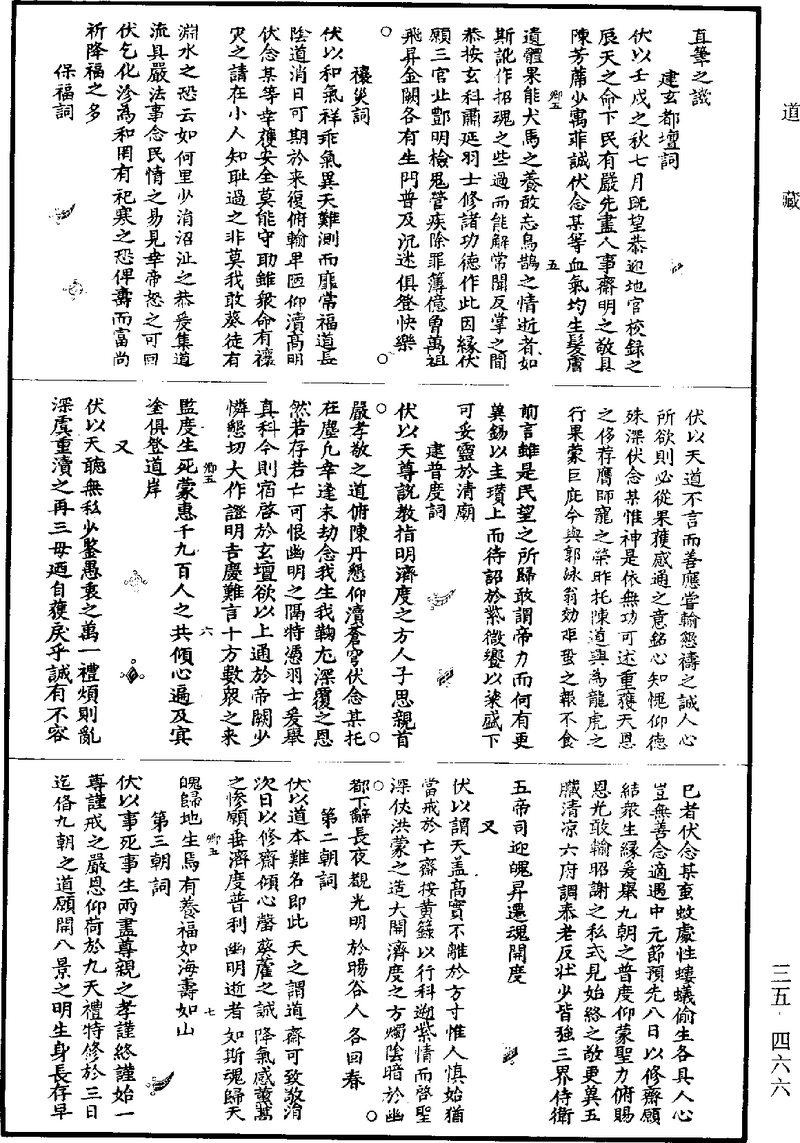 道藏
三五·四六六
直筆之議
建玄都壇詞
伏以壬戌之秋七月既望恭迎地官校錄之
辰天之命下民有嚴先盡人事齋明之敬具
陳芳席少寓菲誠伏念某等血氣均生髮膚
遺體果能犬馬之養敢忘烏鵲之情逝者如
斯訛作招魂之些過而能解常聞反掌之間
恭按玄科肅延羽士修諸功德作此因緣伏
願三官止酆明檢鬼管疾除罪簿億曾萬祖
飛昇金闕各有生門普及沉迷俱登快樂
禳災詞
伏以和氣祥乖氣異天難測而靡常福道長
陰道消日可期於來復俯輸卑陋仰瀆高明
伏念某等幸獲安全莫能守助雖衆命有禳
灾之請在小人知耻過之非莫我敢葵徒有
淵水之恐云如何里少消沼沚之恭爰集道
流具嚴法事念民情之易見幸帝怒之可回
伏乞化沴為和罔有祀寒之恐俾壽而富尚
祈降福之多
保福詞
伏以天道不言而善應嘗輸懇禱之誠人心
所欲則必從果獲感通之意銘心知愧仰德
殊深伏念某惟神是依無功可述重獲天恩
之侈荐膺師寵之榮昨托陳道與為龍虎之
行果蒙巨庇今與郭詠翁効蚷蛩之報不食
前言雖是民望之所歸敢謂帝力而何有更
冀錫以圭瓚上而待詔於紫微饗以粢盛下
可妥靈於清廟
建普度詞
伏以天尊説教指明濟度之方人子思親首
嚴孝敬之道俯陳丹懇仰瀆蒼穹伏念某托
在塵凡幸逢末劫念我生我鞠尢深覆之恩
然若存若亡可恨幽明之隔特憑羽士爰舉
真科今則宿啓於玄壇欲以上通於帝闕少
憐懇切大作證明吉慶難言十方數衆之來
監度生死蒙惠千九百人之共傾心遍及㝠
塗俱登道岸
又
伏以天聽無私少鑒愚衷之萬一禮煩則亂
深虞重瀆之再三毋廼自獲戾乎誠有不容
已者伏念某蚉蚊處性螻蟻偷生各具人心
豈無善念適遇中元節預先八日以修齋願
結衆生緣爰舉九朝之普度仰蒙聖力俯賜
恩光敢輸昭謝之私式見始終之敬更冀五
臟清凉六府調泰老反壯少皆強三界侍衛
五帝司迎魄昇還魂開度
又
伏以謂天蓋髙實不離於方寸惟人慎始猶
當戒於亡齋按黃籙以行科迎紫情而啓聖
深俠洪蒙之造大開濟度之方燭陰暗於幽
都下辭長夜覩光明於暘谷人各回春
第二朝詞
伏以道本難名即此天之謂道齋可致敬消
次日以修齋傾心罄葵藿之誠降氣感薰蒿
之慘願垂濟度普利幽明逝者如斯魂歸天
魄歸地生焉有養福如海壽如山
第三朝詞
伏以事死事生兩盡尊親之孝謹終謹始一
尊謹戒之嚴恩仰荷於九天禮特修於三日
迄偹九朝之道願開八景之明生身長存早
卿五
五
卿五
六
卿五
七